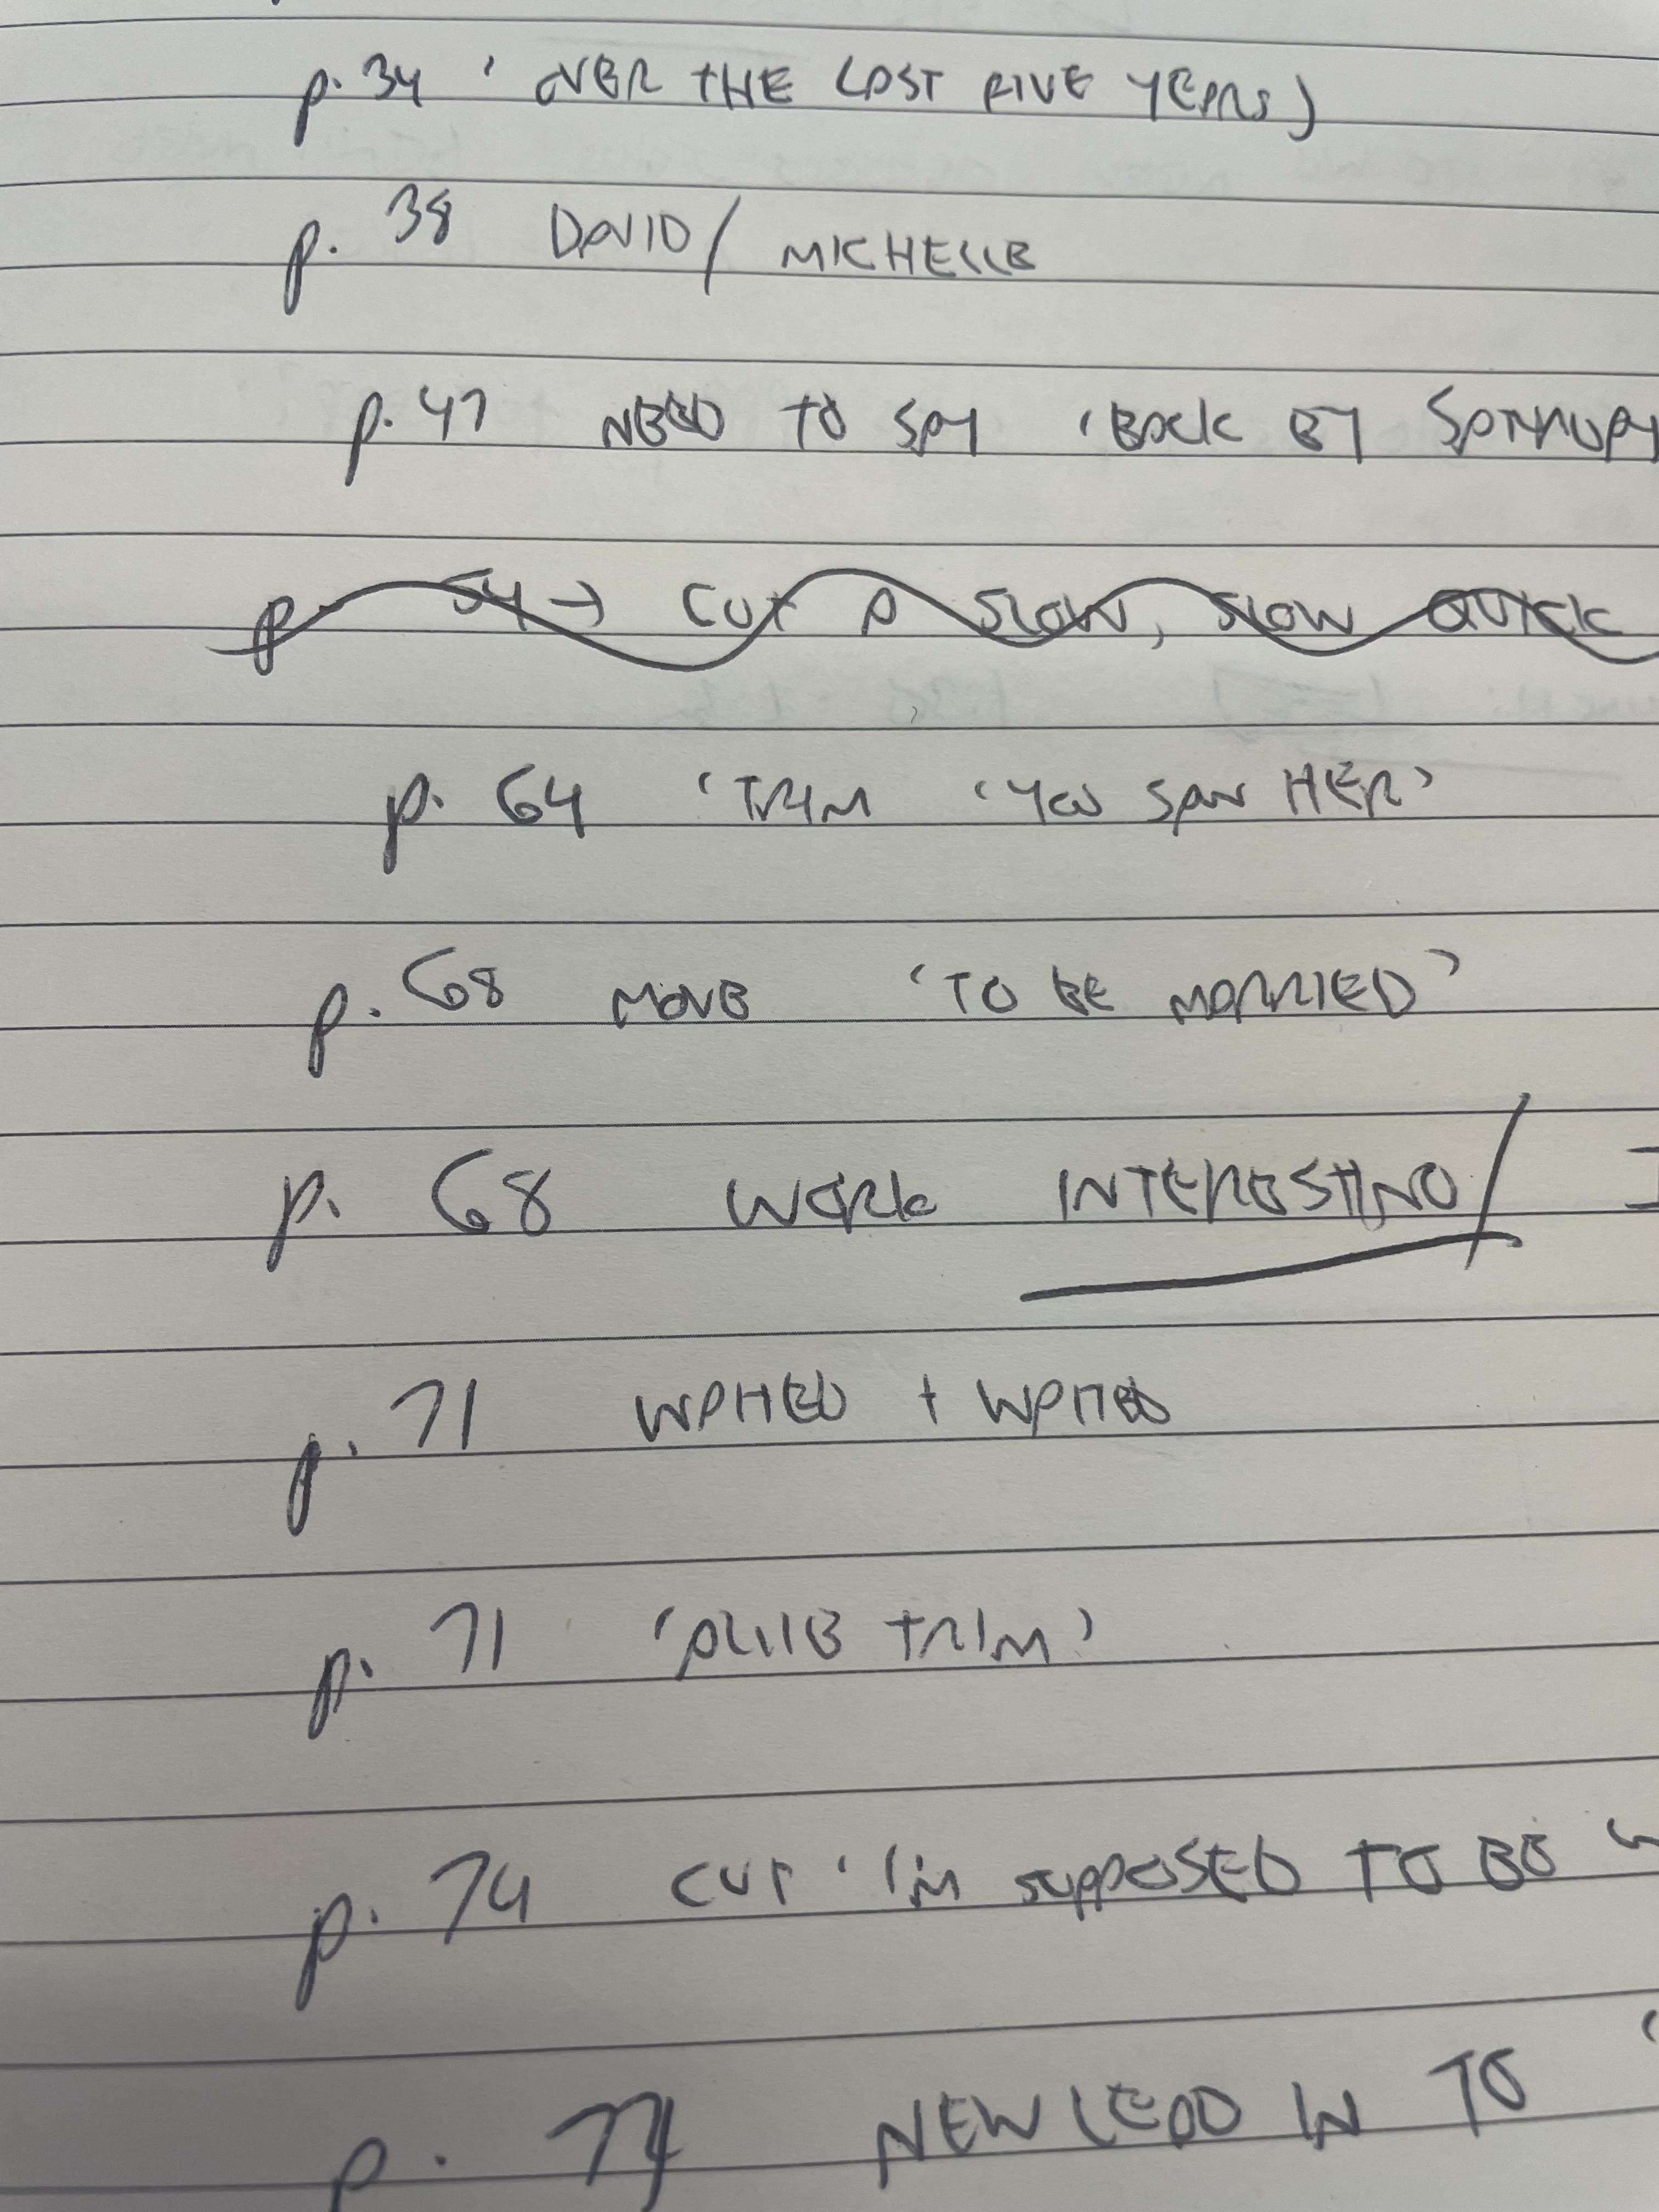 p. 34 ' OVER THE LAST FIVE YEARS)
p. 38 DAVID / MICHELLE
p. 47 NEED TO SAY 'BACK BY SATURDAY
p. 54 → CUT A SLOW, SLOW QUICK
p. 64 'TRIM 'YOU SAW HER'
p. 68 MOVE 'TO BE MARRIED'
p. 68 WORK INTERESTING /
p. 71 WAITED + WAITED
p. 71 ' TRIM'
p. 74 CUT 'I'M SUPPOSED TO BE
p. 74 NEW LEAD IN TO '